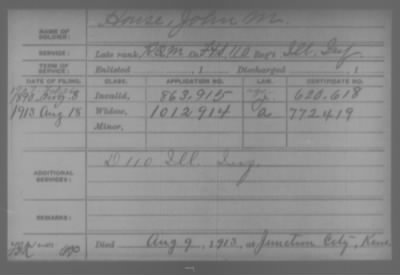 NAME OF SOLDIER: House, John M.
SERVICE: Late rank, Co. Reg't Ill. Inf.
TERM OF SERVICE: Enlisted , 1 Discharged , 1
DATE OF FILING. CLASS. APPLICATION NO. LAW. CERTIFICATE NO.
1890 Aug. 8 Invalid, 863.915 620.618
1913 Aug 18 Widow, 1012.914 a 772419
Minor,
ADDITIONAL SERVICES: D 110 Ill. Inf.
REMARKS:
Died Aug 9, 1913, at Junction City, Kans.